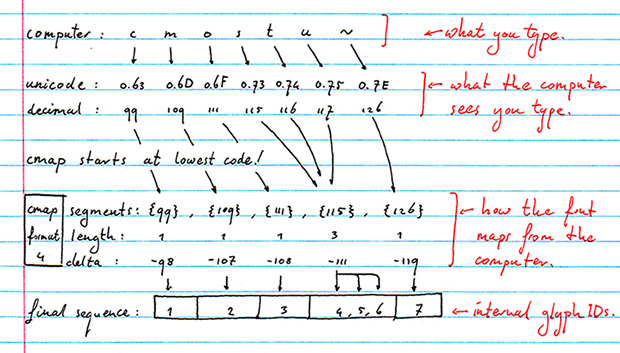 computer : c m o s t u ~
← what you type.
unicode : 0.63 0.6D 0.6F 0.73 0.74 0.75 0.7E
decimal : 99 109 111 115 116 117 126
← what the computer
sees you type.
cmap starts at lowest code!
cmap format 4
segments: {99} , {109} , {111} , {115} , {126}
length : 1 1 1 3 1
delta : -98 -107 -108 -111 -119
← how the font
maps from the
computer.
final sequence : 1 2 3 4, 5, 6 7
← internal glyph IDs.